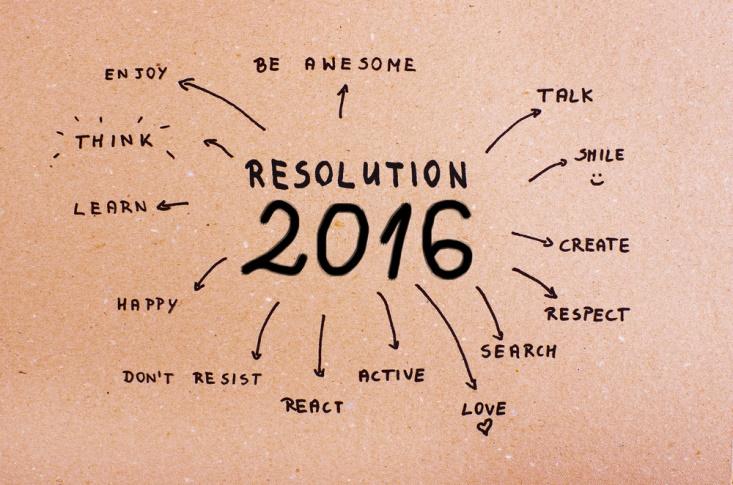 BE AWESOME
ENJOY
TALK
THINK
SMILE
RESOLUTION
LEARN
2016
CREATE
HAPPY
RESPECT
SEARCH
DON'T RESIST
ACTIVE
REACT
LOVE